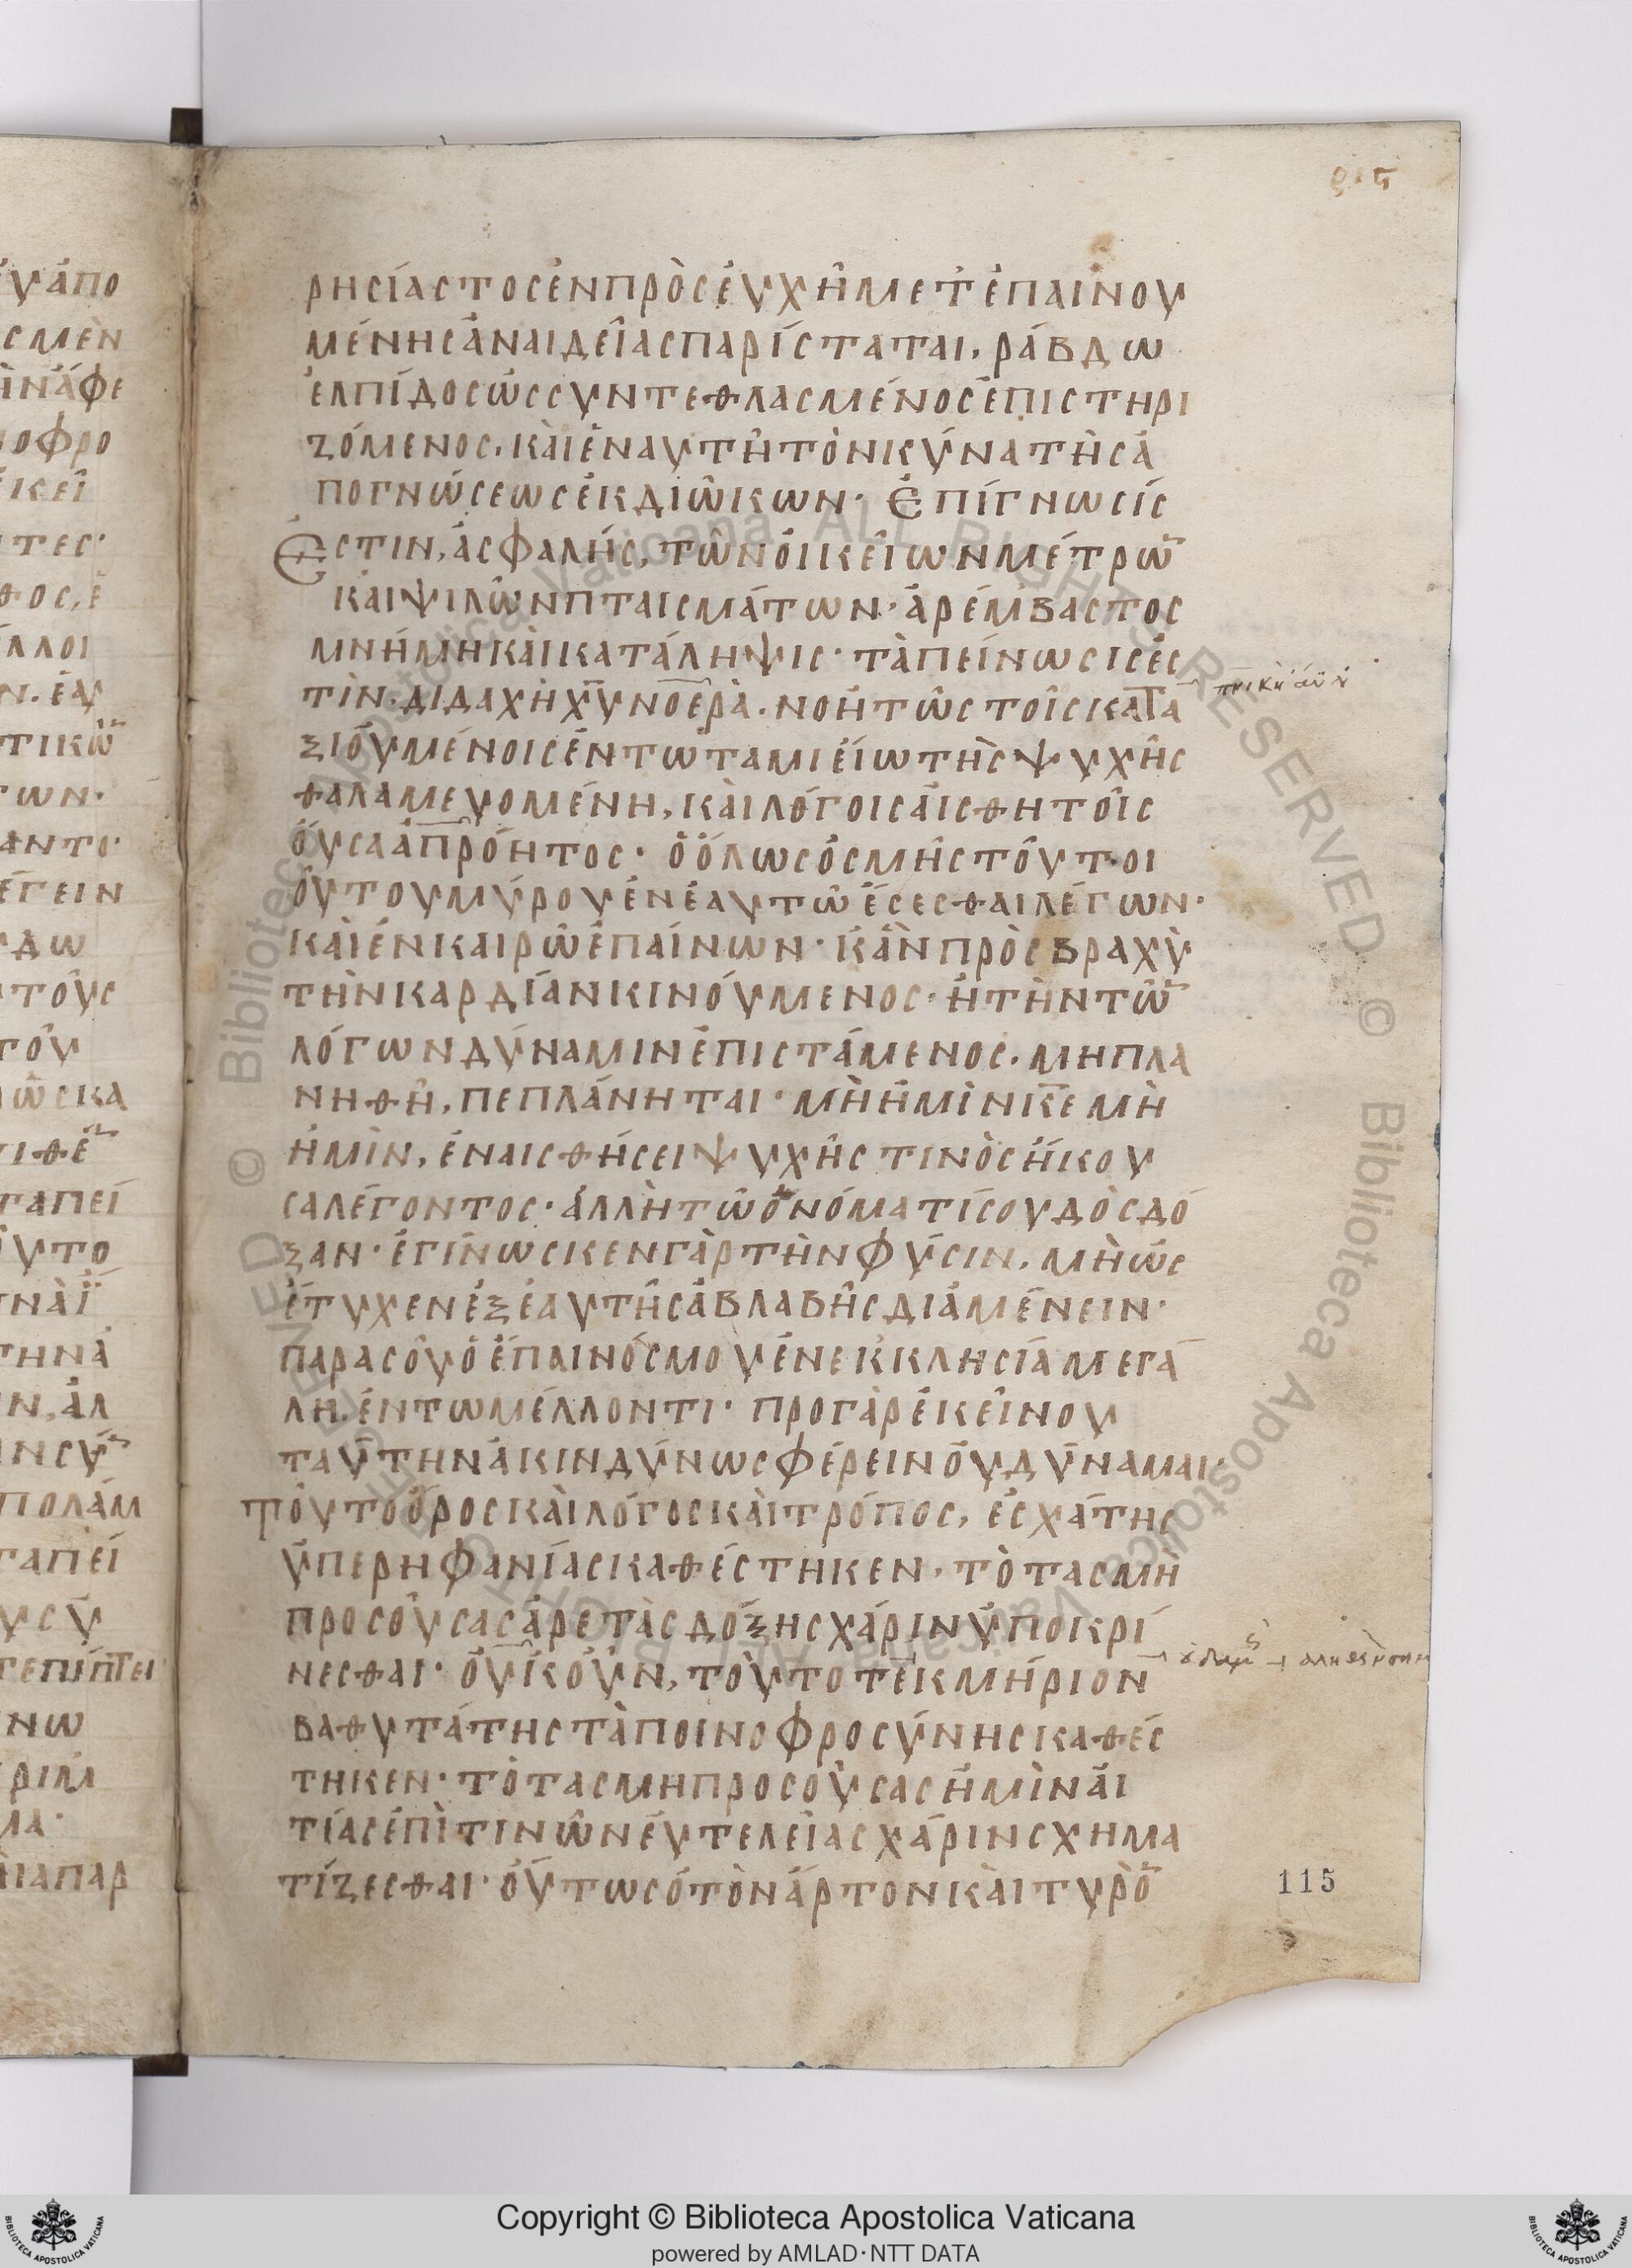 ρησίαστος ἐν προσευχῆ μετ ἐπαινου
μένης ἀναιδείας παρίσταται, ράβδω
ἐλπίδος ὡς συντεθλασμένος ἐπιστηρι
ζόμενος, καὶ ἐν αυτῆ τὸν κύνα τῆς ἀ
πογνώσεως ἐκδιώκων· Ἐπίγνωσίς
Ἐστιν, ἀσφαλής, τῶν οἰκείων μέτρω̅
και ψιλῶν πταισμάτων· ἀρέμβαστος
μνήμη καὶ κατάληψις· ταπείνωσις ἐσ
τὶν· διδαχὴ χ̅υ̅ νοερὰ· νοητῶς τοῖς κατα
ξιουμένοις ἐν τω ταμιείω τῆς ψυχῆς
θαλαμευομένη, καὶ λόγοις αἰσθητοῖς
οὖσα ἀπρόητος· ὁ ὅλως ὀσμῆς τοῦ τοι
ούτου μύρου ἐν ἑαυτῶ ἔσεσθαι λέγων·
καὶ ἐν καιρῶ ἐπαίνων· κἂν πρὸς βραχὺ
τὴν καρδίαν κινούμενος· ἢ τὴν τῶ̅
λόγων δύναμιν ἐπιστάμενος· μη πλα
νηθῆ, πεπλάνηται· μὴ ἡμῖν κ̅ε̅ μὴ
ἡμῖν, ἐν αισθήσει ψυχῆς τινὸς ἤκου
σα λέγοντος· ἀλλ ἢ τῶ ὀνόματί σου δὸς δό
ξαν· ἐγίνωσκεν γὰρ τὴν φύσιν, μὴ ὡς
ἔτυχεν ἐξ ἑαυτῆς ἀβλαβῆς διαμένειν·
παρα σοῦ ὁ ἔπαινός μου ἐν ἐκκλησία μεγά
λη· ἐν τω μέλλοντι· προ γὰρ ἐκείνου
ταύτην ἀκινδύνως φέρειν οὐ δύναμαι·
Τοῦτο ὅρος καὶ λόγος καὶ τρόπος, ἐσχάτης
ὑπερηφανίας καθέστηκεν· τὸ τας μὴ
προσούσας ἀρετὰς δόξης χάριν ὑποκρί
νεσθαι· οὐκοῦν, τοῦτο τεκμήριον
βαθυτάτης ταποινοφροσύνης καθέσ
τηκεν· τὸ τας μη προσούσας ἡμὶν ἀι
τίας ἐπὶ τινῶν ἐυτελείας χάριν σχημα
τίζεσθαι· οὕτως ὁ τὸν ἄρτον καὶ τυρὸ̅
115
Copyright © Biblioteca Apostolica Vaticana
powered by AMLAD·NTT DATA